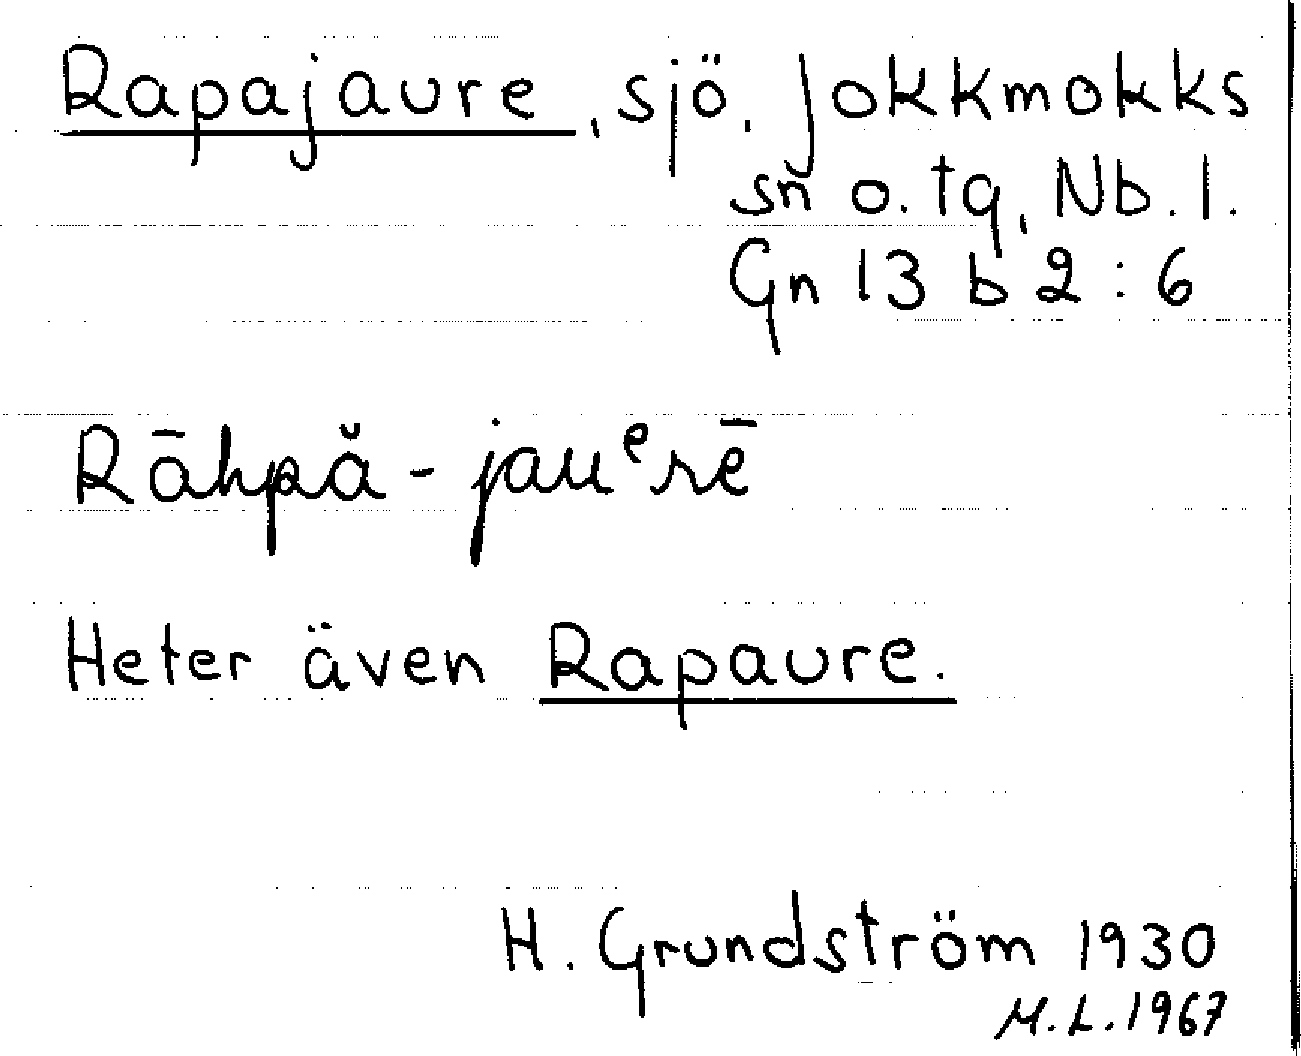 Rapajaure, sjö, Jokkmokks
sn o. tg, Nb. l.
Gn 13 b 2 : 6
Rāhpă - jauᵉrē
Heter även Rapaure.
H. Grundström 1930
M.L. 1967